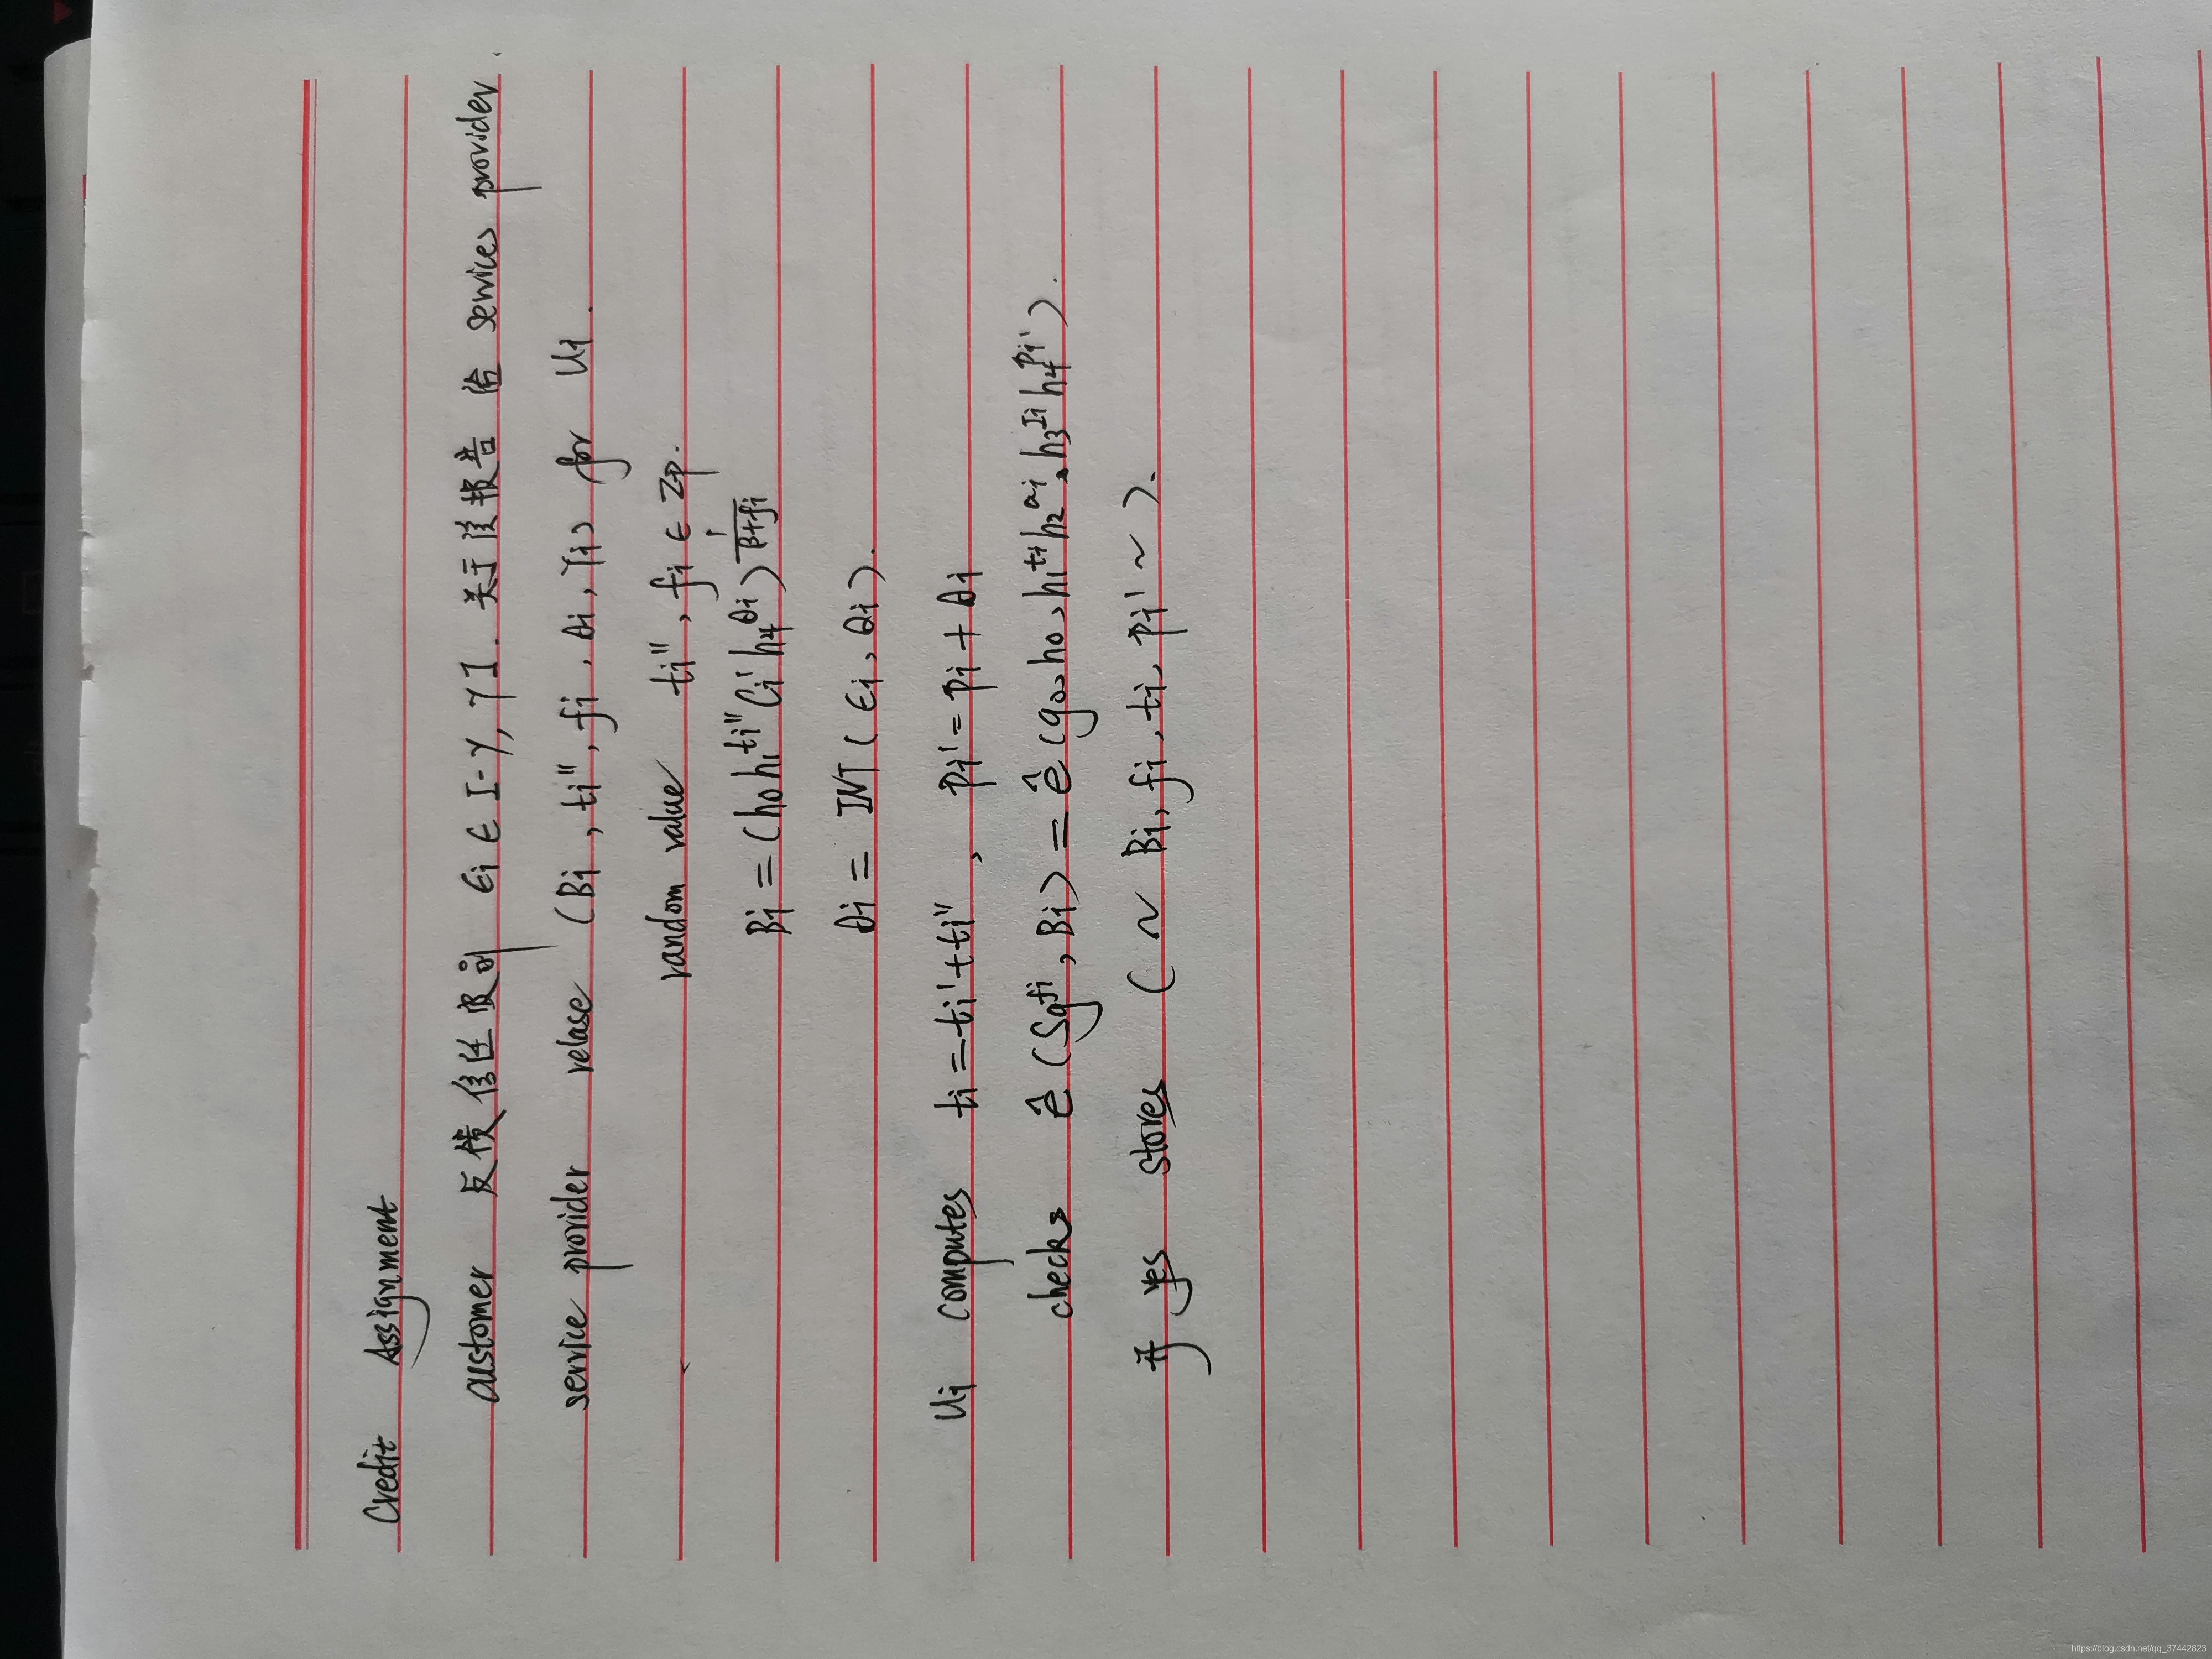 Credit Assignment
customer 反馈信任级别 ϵi ∈ [-γ, γ]. 关于该报告 给 service provider.
service provider relase (Bi, ti'', fi, θi, γi) for Ui.
random value ti'', fi ∈ Zp.
Bi = (h0h1^ti''Ci'h4^θi)^1/(β+fi)
θi = INT(ϵi, θi).
Ui computes ti = ti' + ti'', pi' = pi + θi
checks ê(Sg^fi, Bi) = ê(g0, h0, h1^ti h2^ai, h3^Ii h4^pi').
if yes stores (~ Bi, fi, ti, pi' ~).
https://blog.csdn.net/qq_37442823